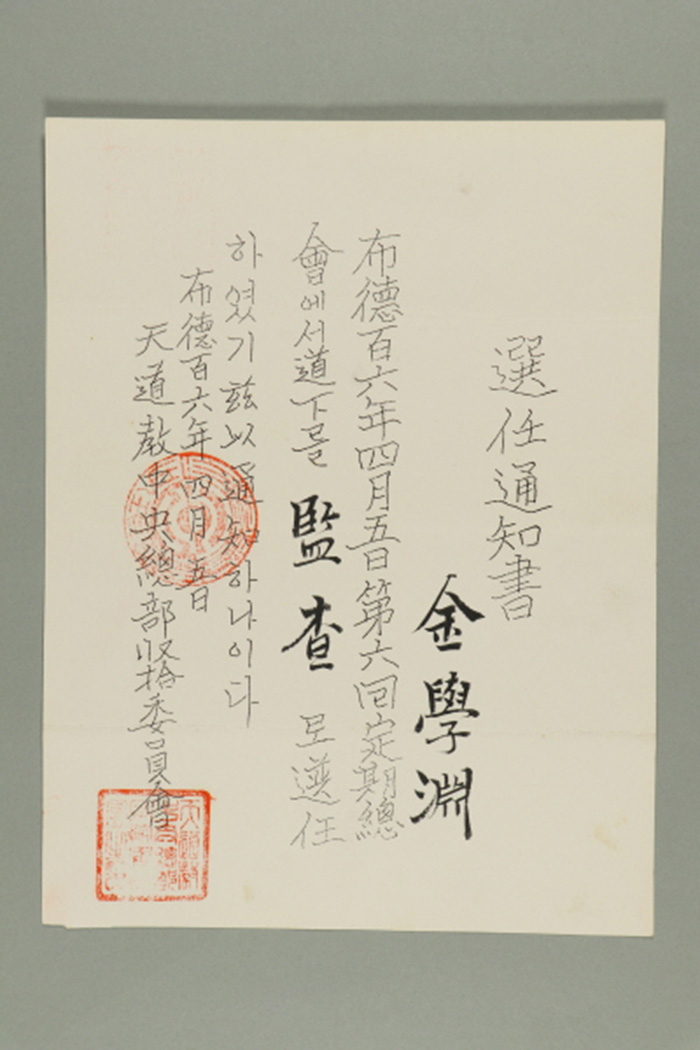 選任通知書
金學淵
布德百六年四月五日第六回定期總
會에서道下를 監査 로選任
하였기玆以通知하나이다
布德百六年四月五日
天道敎中央總部收拾委員會